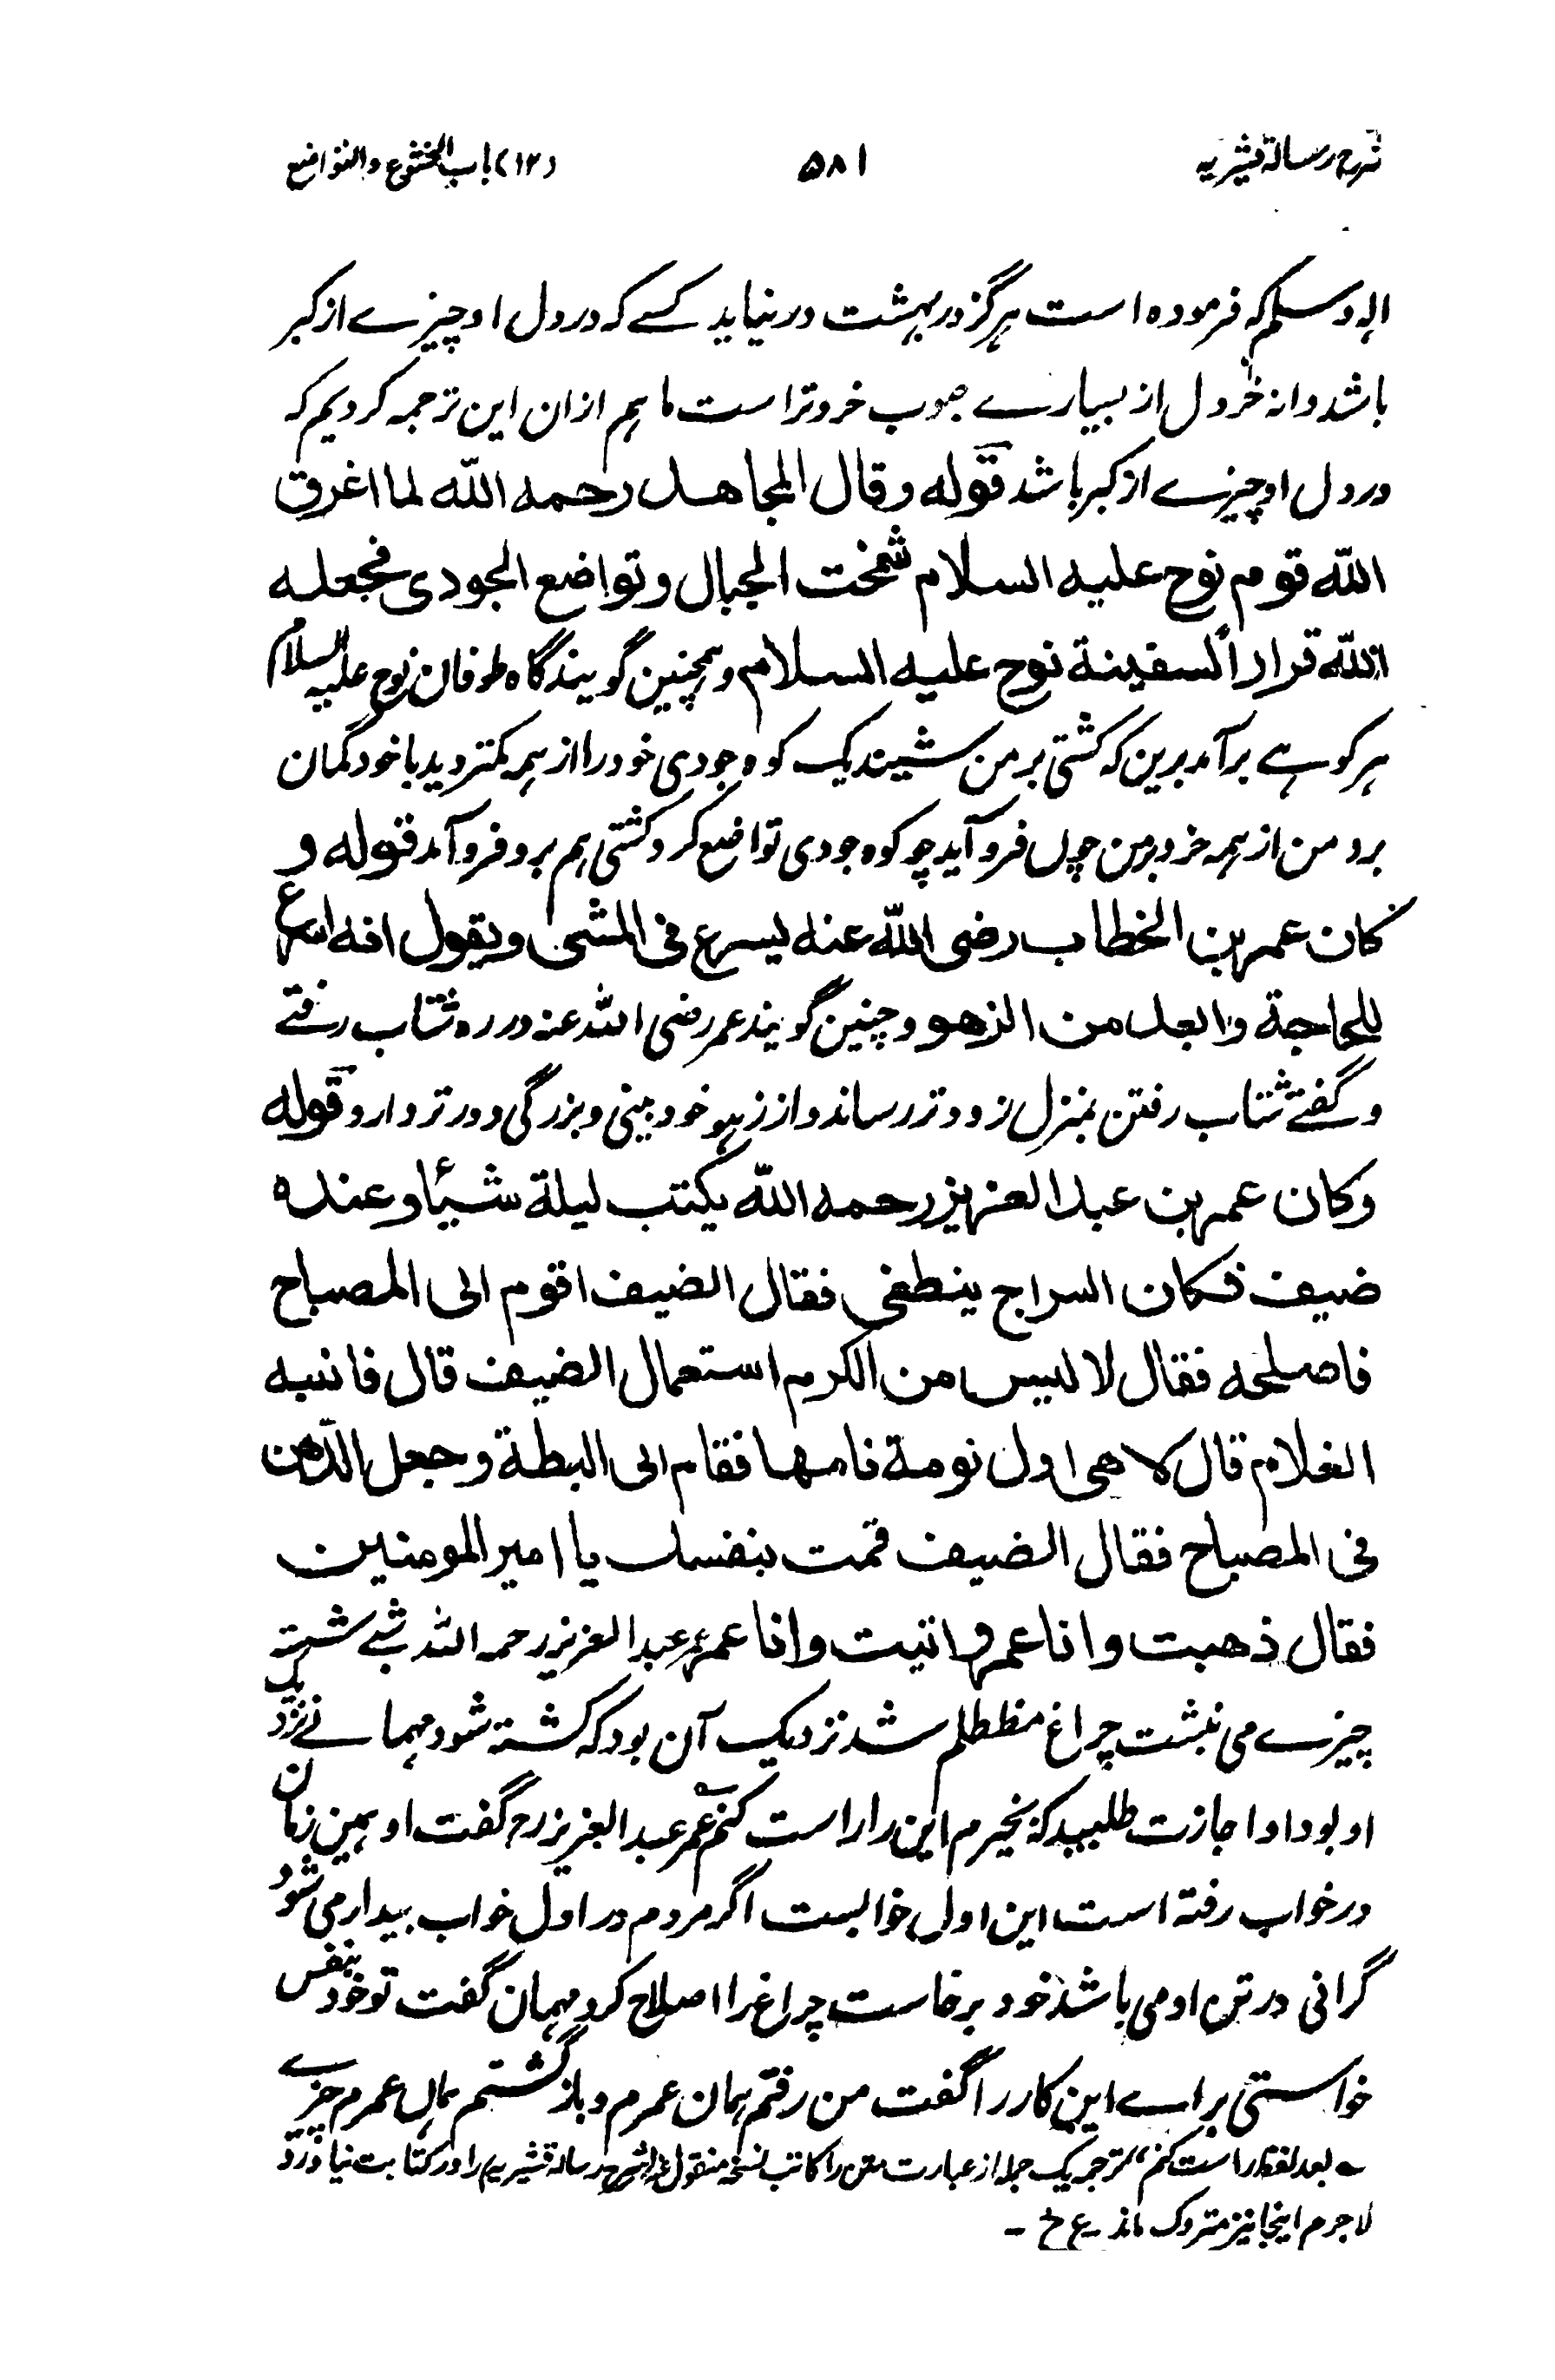 شرح رسالۀ قشیریه ۵۸۱ (۱۲) باب الخشوع والتواضع
اله وسلم که فرموده است هرگز در بهشت در نیاید کسے که در دل او چیزے از کبر
باشد دانه خردل از بسیارے حبوب خردتر است ما هم ازان این ترجمه کردیم که
در دل او چیزے از کبر باشد قوله وقال المجاهد رحمه الله لما اغرق
الله قوم نوح علیه السلام شمخت الجبال وتواضع الجودی فجعله
الله قراراً لسفینة نوح علیه السلام وهمچنین گویند گاه طوفان نوح علیه السلام
هر کوهے برآمد برین که کشتی بر من نشیند یک کوه جودی خود را از همه کمتر دید با خود گمان
برد من از همه خرد بر من چوں فرو آید چو کوه جودی تواضع کرد کشتی هم برو فرو آمد قوله و
کان عمر بن الخطاب رضی الله عنه یسرع فی المشی ویقول انه اسرع
للحاجة وابعد من الزهو وچنین گویند عمر رضی الله عنه در ره شتاب رفتے
و گفتے شتاب رفتن بمنزل زودتر رساند و از زهو خودبینی و بزرگی دورتر دارد قوله
وکان عمر بن عبد العزیز رحمه الله یکتب لیلة شیئا وعنده
ضیف فکان السراج ینطفی فقال الضیف اقوم الی المصباح
فاصلحه فقال لا لیس من الکرم استعمال الضیف قال فانبه
الغلام قال لا هی اول نومة نامها فقام الی البطة وجعل الدّهن
فی المصباح فقال الضیف قمت بنفسک یا امیر المومنین
فقال ذهبت وانا عمر و اتیت وانا عمر عمر عبد العزیز رحمه الله شبے نشسته
چیزے می نبشت چراغ مظطلم شد نزدیک آن بود که کشته شود مهمانے نزدیک
او بود او اجازت طلبید که بخیرم این را راست کنم عمر عبد العزیز رح گفت او همین زمان
در خواب رفته است این اول خوابست اگر مردم در اول خواب بیدار می شود
گرانی در تن او می باشد خود برخاست چراغ را اصلاح کرد مهمان گفت تو خود بنفس
خواستی براے این کار را گفت من رفتم همان عمرم و باز گشتم همان عمرم چیزے
؎ بعد لفظ راست کنم، ترجمه یک جمله از عبارت متن را کاتب نسخه منقول عنه شرح رساله قشیریه را در کتابت نیاورد
لاجرم اینجا نیز متروک ماند ـ ع ح ـ